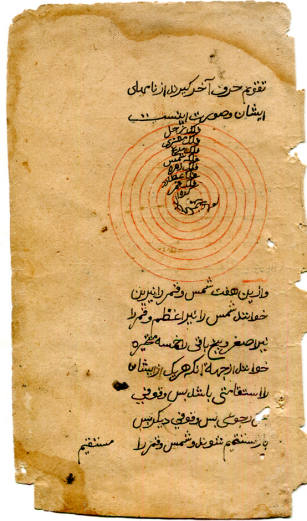 تقویم حرف آخر گیرند از نامهای
ایشان و صورت اینست
فلک زحل
فلک مشتری
فلک مریخ
فلک شمس
فلک زهره
فلک عطارد
فلک قمر
وازین هفت شمس و قمر را نیرین
خوانند شمس را نیر اعظم و قمر را
نیر اصغر و پنج باقی را خمسه متحیره
خوانند از جهة آنکه هر یک از ایشان
را استقامتی باشد پس وقوفی
پس رجوعی پس وقوفی دیگر پس
باز مستقیم شوند و شمس و قمر را
مستقیم